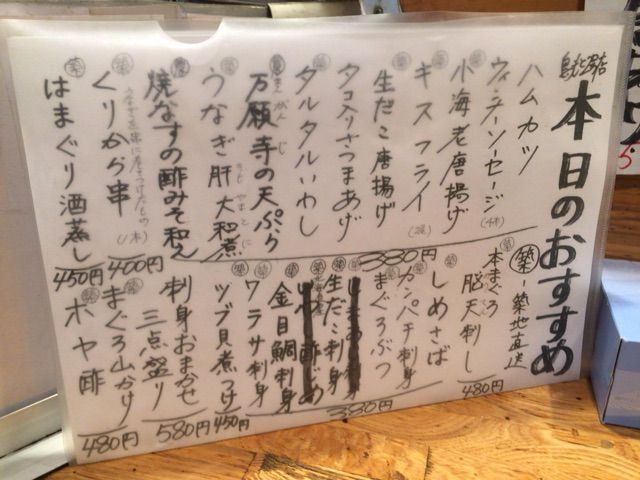 本日のおすすめ
ハムカツ
ウィンナーソーセージ(4本)
小海老唐揚げ
キスフライ
生だこ唐揚げ
タコ入りさつまあげ
タルタルいわし
万願寺の天ぷら
まんがんじ
うなぎ肝大和煮
焼なすの酢みそ和え
380円
くりから串
(1本)
400円
はまぐり酒蒸し
450円
築-築地直送
本まぐろ
脳天刺し
480円
しめさば
カンパチ刺身
まぐろぶつ
生だこ刺身
金目鯛刺身
ワラサ刺身
380円
ツブ貝煮つけ
450円
刺身おまかせ
三点盛り
580円
まぐろ山かけ
ホヤ酢
480円